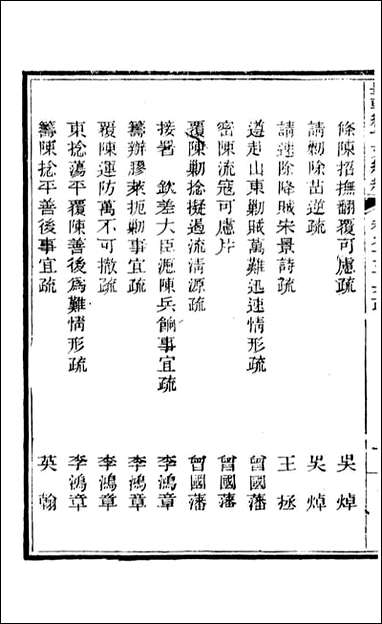 條陳招撫翻覆可慮疏 吳焯
請勦除苗逆疏 吳焯
請速除降賊宋景詩疏 王拯
遵赴山東勦賊萬難迅速情形疏 曾國藩
密陳流寇可慮片 曾國藩
覆陳勦捻擬遏流淸源疏 曾國藩
接署 欽差大臣瀝陳兵餉事宜疏 李鴻章
籌辦膠萊扼勦事宜疏 李鴻章
覆陳運防萬不可撤疏 李鴻章
東捻蕩平覆陳善後爲難情形疏 李鴻章
籌陳捻平善後事宜疏 英翰